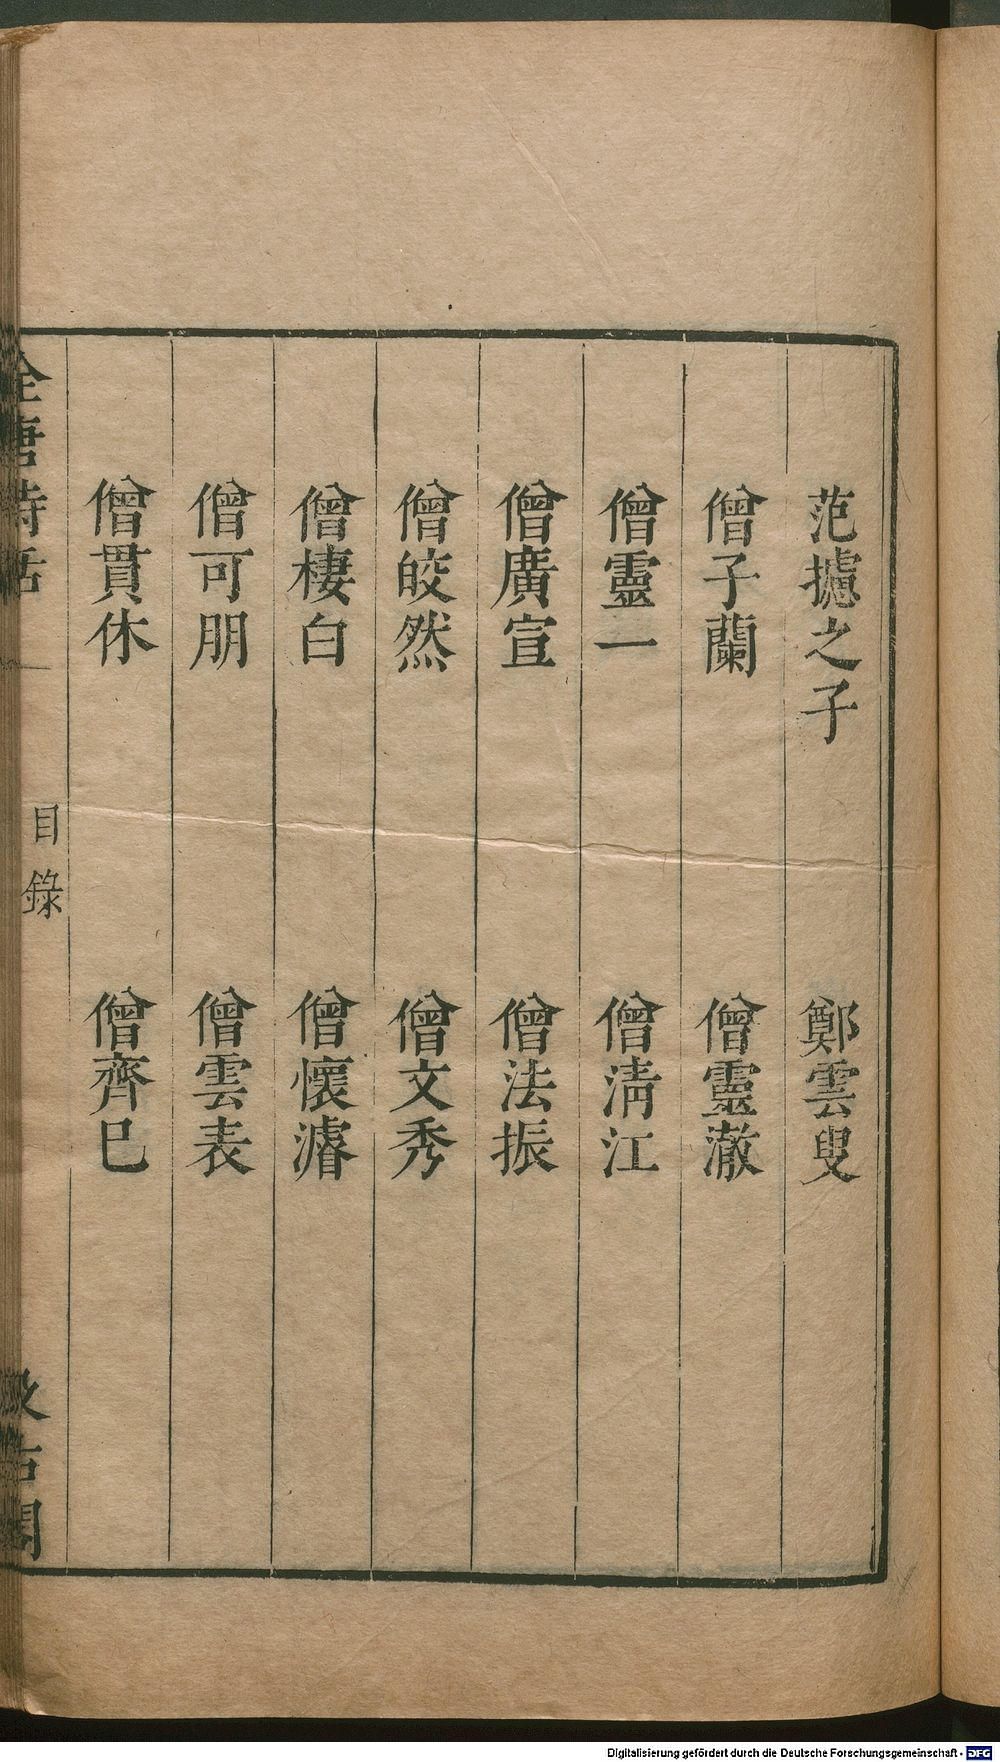 范攄之子　鄭雲叟
僧子蘭　僧靈澈
僧靈一　僧淸江
僧廣宣　僧法振
僧皎然　僧文秀
僧棲白　僧懷濬
僧可朋　僧雲表
僧貫休　僧齊巳
全唐詩話　目錄　汲古閣
Digitalisierung gefördert durch die Deutsche Forschungsgemeinschaft - DFG